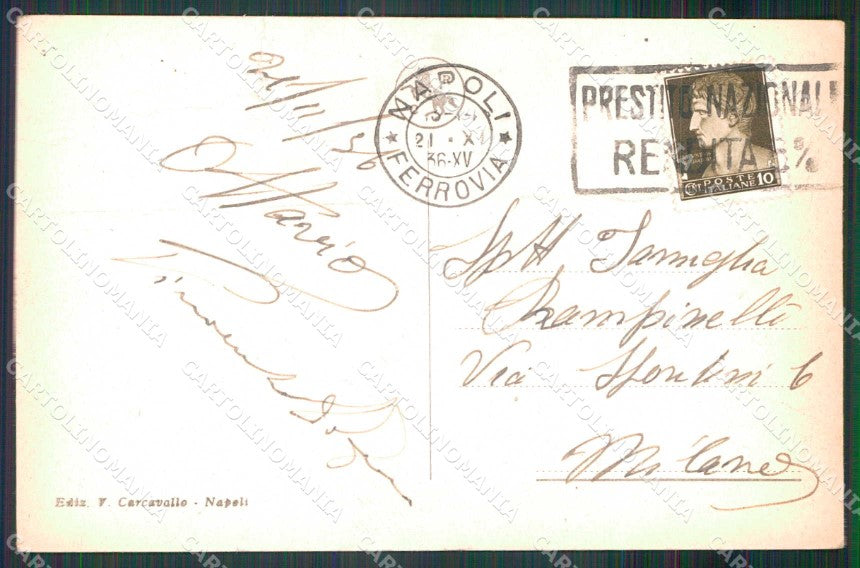 21/11/36
Mario
NAPOLI
21 · XI
36·XV
FERROVIA
PRESTITO NAZIONAL
RENDITA 5%
POSTE
ITALIANE 10
Spett Famiglia
Rampinelli
Via Spontini 6
Milano
Ediz. V. Carcavallo - Napoli
CARTOLINOMANIA